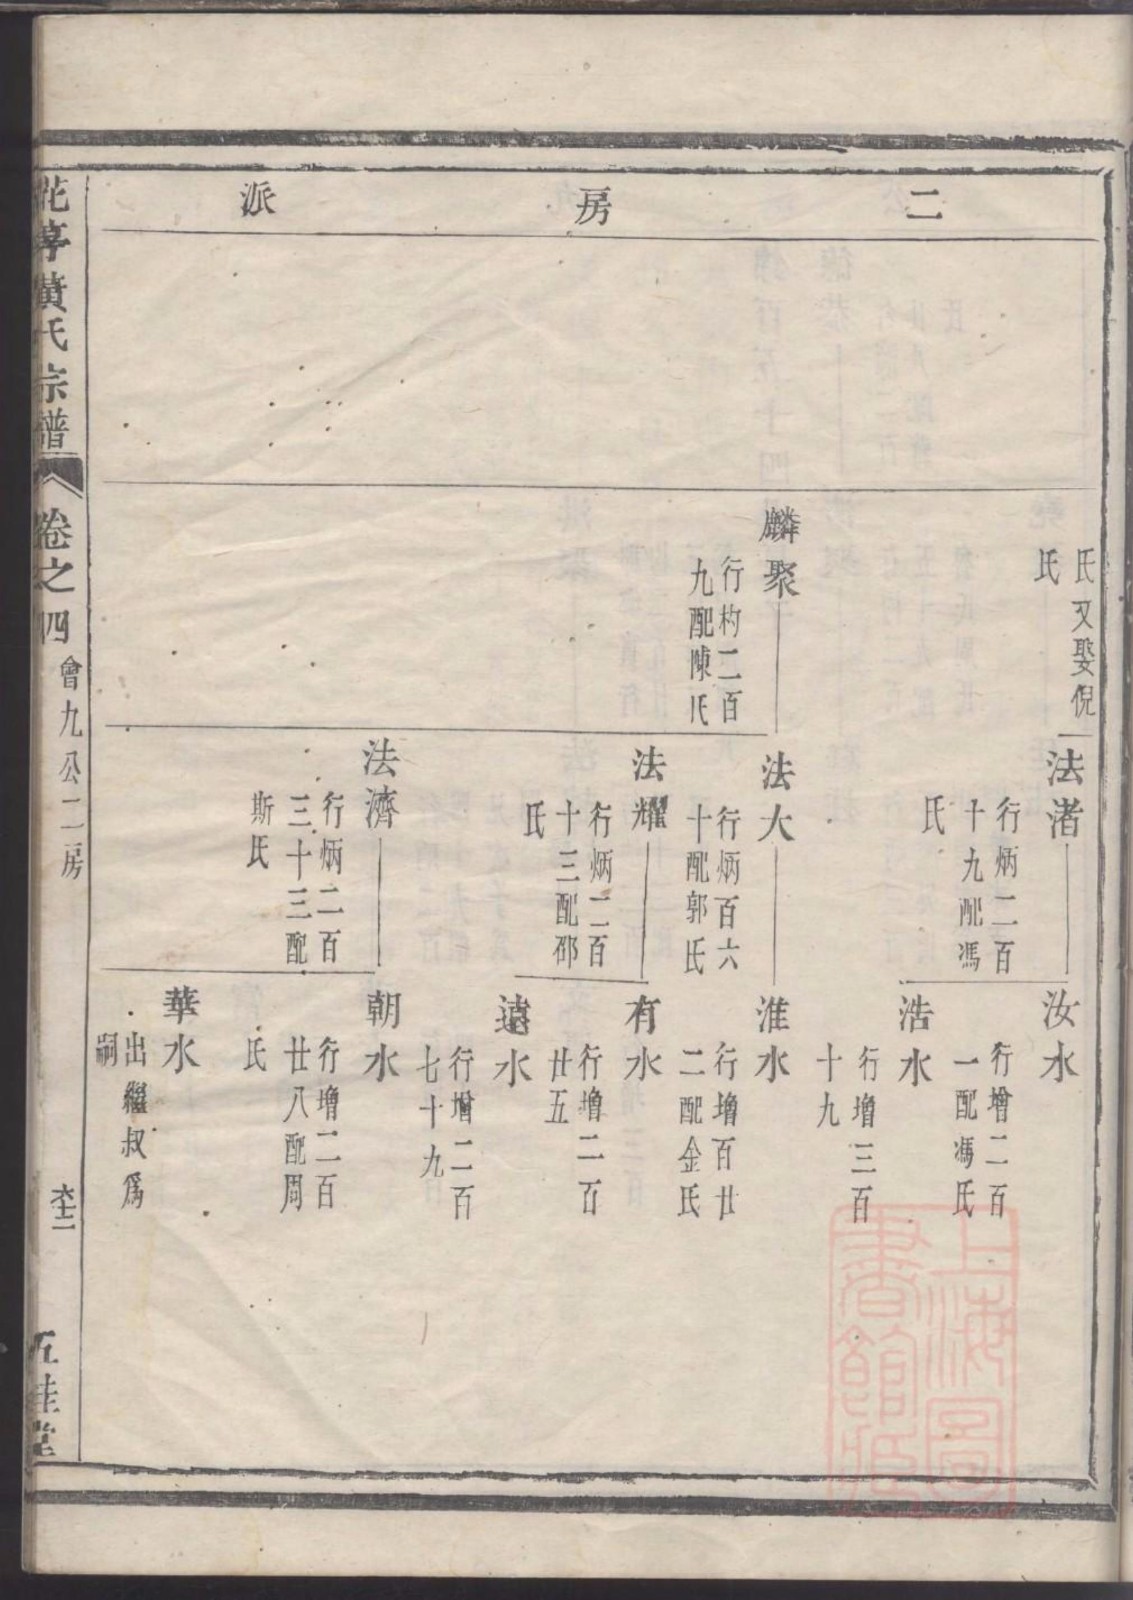 二房派
氏又娶倪
氏
麟聚
行杓二百
九配陳氏
法渚
行炳二百
十九配馮
氏
法大
行炳百六
十配郭氏
法耀
行炳二百
十三配邵
氏
法濟
行炳二百
三十三配
斯氏
汝水
行增二百
一配馮氏
浩水
行增三百
十九
淮水
行增百廿
二配金氏
有水
行增二百
廿五
遠水
行增二百
七十九
朝水
行增二百
廿八配周
氏
華水
出繼叔爲
嗣
花亭黃氏宗譜
卷之四
會九公二房
五桂堂
上海圖
書館藏